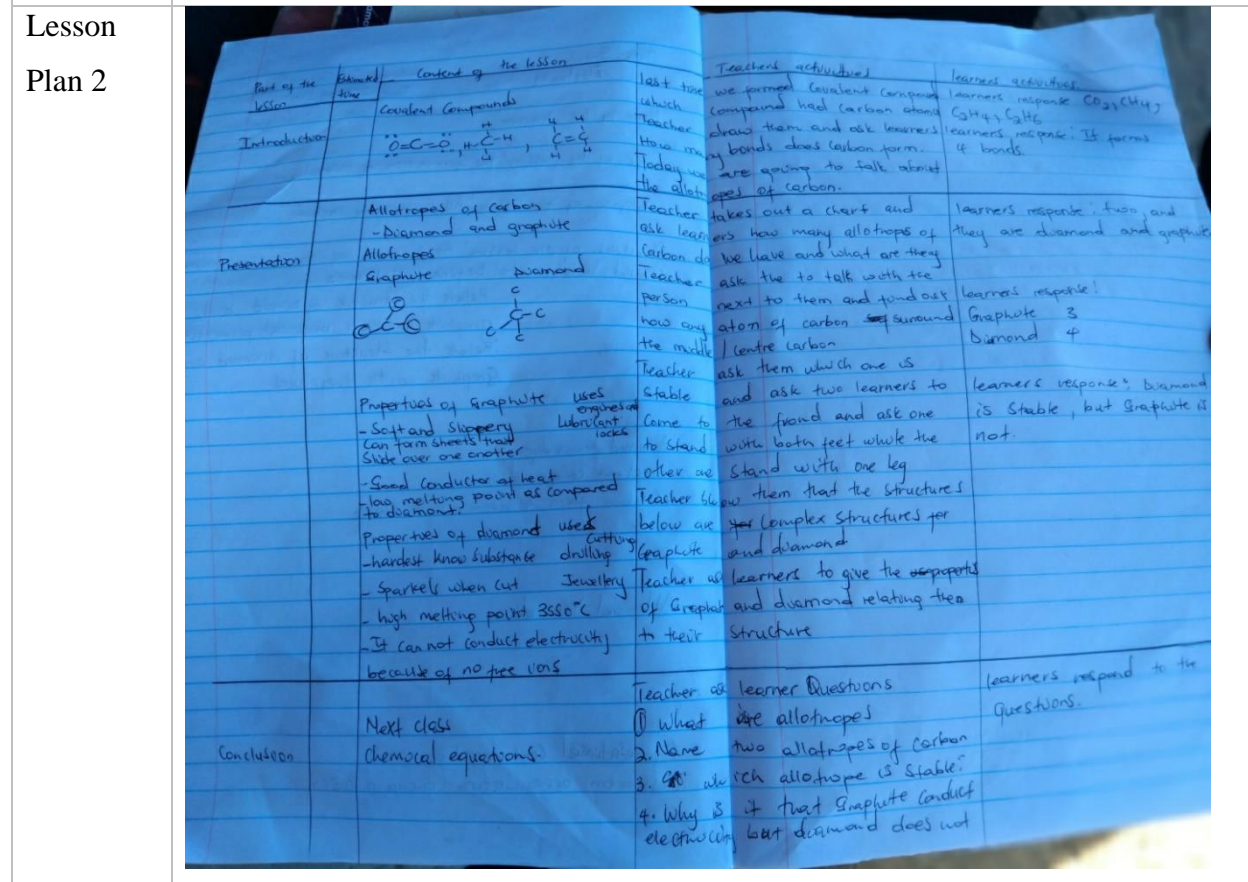 Lesson
Plan 2
Part of the
lesson
Estimated
time
Content of the lesson
Teachers activities
learners activities
Introduction
Covalent Compounds
O=C=O, H-C-H, C=C
H H H
H H H
last time we formed Covalent compound
which compound had carbon atoms
Teacher draw them and ask learners
How many bonds does carbon form.
Today we are going to talk about
the allotropes of carbon.
learners response CO2, CH4,
C2H4, C2H6
learners response: It forms
4 bonds.
Presentation
Allotropes of carbon
- Diamond and graphite
Allotropes
Graphite Diamond
C
C C C
C
C-C
C C
Properties of Graphite uses
- Soft and Slippery Lubricant engines and
locks
Can form sheets that
Slide over one another
- Good conductor of heat
- low melting point as compared
to diamond.
Properties of diamond uses
- hardest know substance drilling cutting
- Sparkels when cut Jewellery
- high melting point 3550°C
- It can not conduct electricity
because of no free ions
Teacher takes out a chart and
ask learners how many allotrops of
Carbon do we have and what are they
Teacher ask the to talk with the
person next to them and find out
how any atom of carbon surround
the middle / centre carbon
Teacher ask them which one is
Stable and ask two learners to
Come to the frond and ask one
to stand with both feet while the
other one stand with one leg
Teacher show them that the structures
below are complex structures for
Graphite and diamond
Teacher ask learners to give the properties
of Graphat and diamond relating then
to their structure
learners response: two, and
they are diamond and graphite
learners response:
Graphite 3
Diamond 4
learners response; Diamond
is Stable, but Graphite is
not.
Conclusion
Next class
Chemical equations.
Teacher ask learner Questions
① What are allotropes
2. Name two allotropes of carbon
3. which allotrope is stable?
4. Why is it that Graphite Conduct
electricity but diamond does not
learners respond to the
questions.